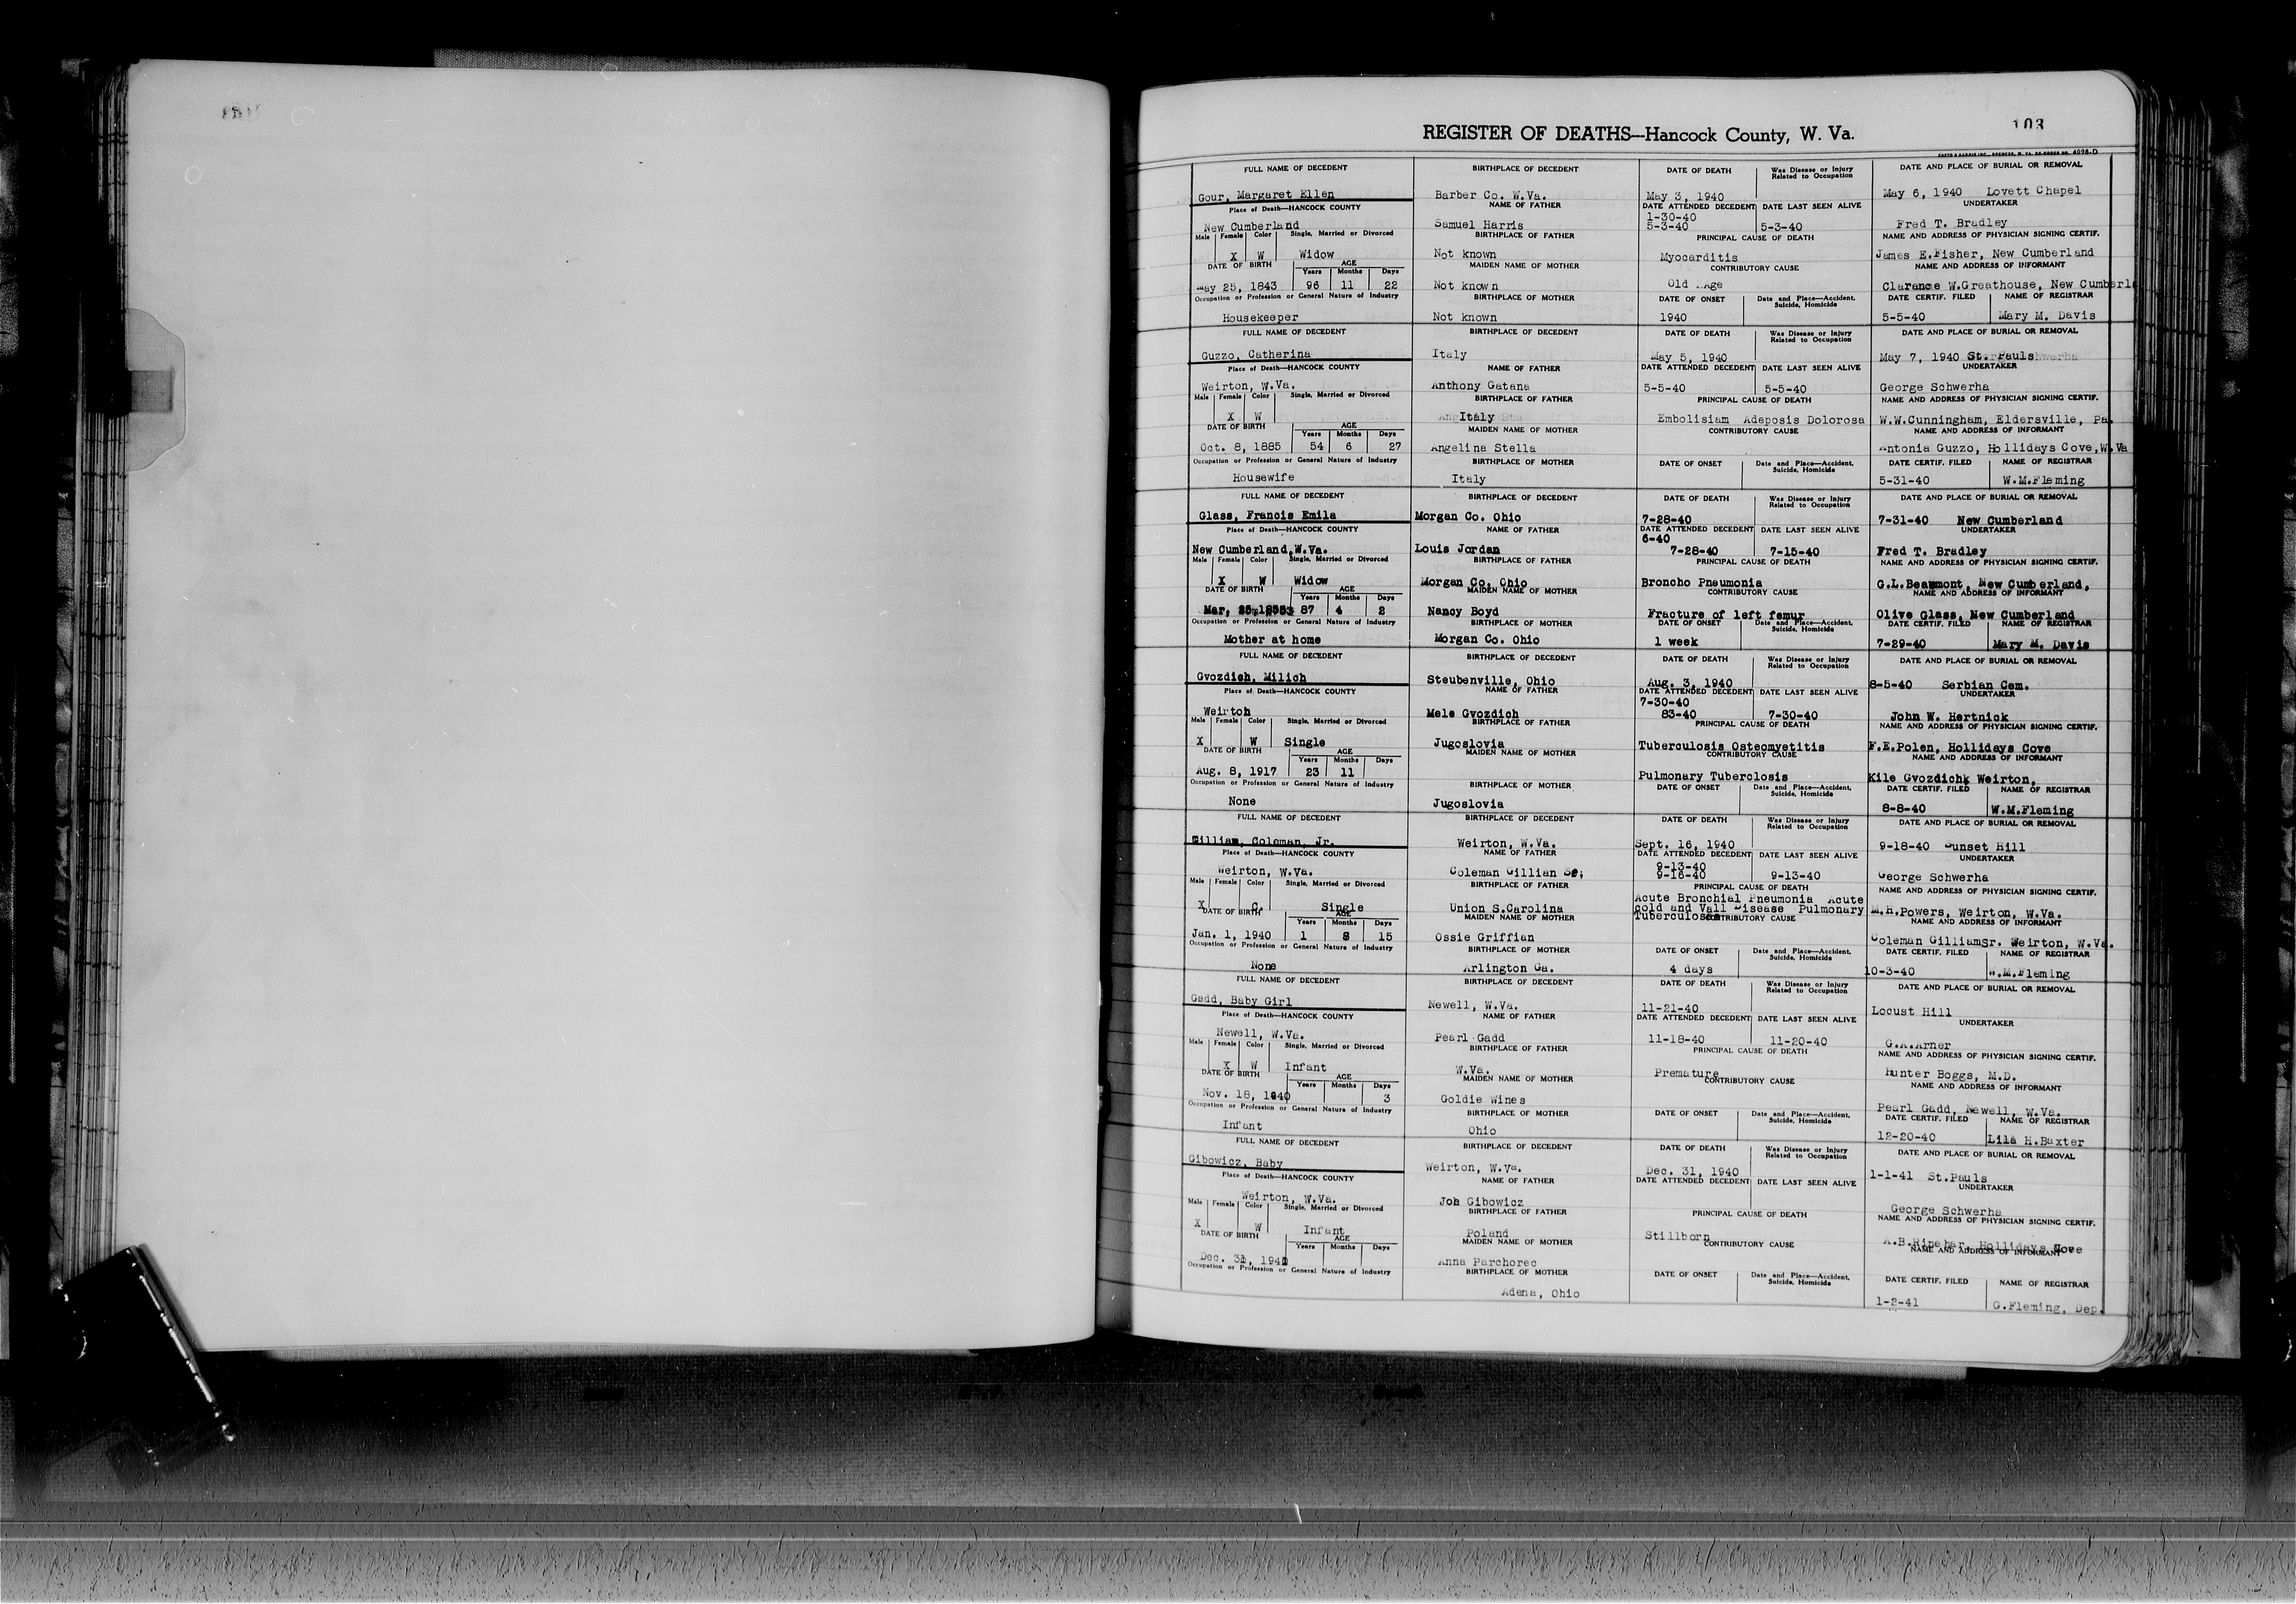 103
REGISTER OF DEATHS—Hancock County, W. Va.
FULL NAME OF DECEDENT BIRTHPLACE OF DECEDENT DATE OF DEATH Was Disease or Injury Related to Occupation DATE AND PLACE OF BURIAL OR REMOVAL
Gour, Margaret Ellen Barber Co. W.Va. May 3, 1940 May 6, 1940 Lovett Chapel
Place of Death—HANCOCK COUNTY NAME OF FATHER DATE ATTENDED DECEDENT DATE LAST SEEN ALIVE UNDERTAKER
New Cumberland Samuel Harris 1-30-40 5-3-40 5-3-40 Fred T. Bradley
Male Female Color Single, Married or Divorced BIRTHPLACE OF FATHER PRINCIPAL CAUSE OF DEATH NAME AND ADDRESS OF PHYSICIAN SIGNING CERTIF.
X W Widow Not known Myocarditis James E.Fisher, New Cumberland
DATE OF BIRTH AGE Years Months Days MAIDEN NAME OF MOTHER CONTRIBUTORY CAUSE NAME AND ADDRESS OF INFORMANT
May 25, 1843 96 11 22 Not known Old Age Clarance W.Greathouse, New Cumberl
Occupation or Profession or General Nature of Industry BIRTHPLACE OF MOTHER DATE OF ONSET Date and Place—Accident, Suicide, Homicide DATE CERTIF. FILED NAME OF REGISTRAR
Housekeeper Not known 1940 5-5-40 Mary M. Davis
FULL NAME OF DECEDENT BIRTHPLACE OF DECEDENT DATE OF DEATH Was Disease or Injury Related to Occupation DATE AND PLACE OF BURIAL OR REMOVAL
Guzzo, Catherina Italy May 5, 1940 May 7, 1940 St. Pauls
Place of Death—HANCOCK COUNTY NAME OF FATHER DATE ATTENDED DECEDENT DATE LAST SEEN ALIVE UNDERTAKER
Weirton, W.Va. Anthony Gatana 5-5-40 5-5-40 George Schwerha
Male Female Color Single, Married or Divorced BIRTHPLACE OF FATHER PRINCIPAL CAUSE OF DEATH NAME AND ADDRESS OF PHYSICIAN SIGNING CERTIF.
X W Italy Embolisiam Adeposis Dolorosa W.W.Cunningham, Eldersville, Pa.
DATE OF BIRTH AGE Years Months Days MAIDEN NAME OF MOTHER CONTRIBUTORY CAUSE NAME AND ADDRESS OF INFORMANT
Oct. 8, 1885 54 6 27 Angelina Stella Antonia Guzzo, Hollidays Cove,W.Va
Occupation or Profession or General Nature of Industry BIRTHPLACE OF MOTHER DATE OF ONSET Date and Place—Accident, Suicide, Homicide DATE CERTIF. FILED NAME OF REGISTRAR
Housewife Italy 5-31-40 W.M.Fleming
FULL NAME OF DECEDENT BIRTHPLACE OF DECEDENT DATE OF DEATH Was Disease or Injury Related to Occupation DATE AND PLACE OF BURIAL OR REMOVAL
Glass, Francis Emila Morgan Co. Ohio 7-28-40 7-31-40 New Cumberland
Place of Death—HANCOCK COUNTY NAME OF FATHER DATE ATTENDED DECEDENT DATE LAST SEEN ALIVE UNDERTAKER
New Cumberland,W.Va. Louis Jordan 6-40 7-28-40 7-15-40 Fred T. Bradley
Male Female Color Single, Married or Divorced BIRTHPLACE OF FATHER PRINCIPAL CAUSE OF DEATH NAME AND ADDRESS OF PHYSICIAN SIGNING CERTIF.
X W Widow Morgan Co. Ohio Broncho Pneumonia G.L.Beaumont, New Cumberland,
DATE OF BIRTH AGE Years Months Days MAIDEN NAME OF MOTHER CONTRIBUTORY CAUSE NAME AND ADDRESS OF INFORMANT
Mar, 87 4 2 Nancy Boyd Fracture of left femur Olive Glass, New Cumberland
Occupation or Profession or General Nature of Industry BIRTHPLACE OF MOTHER DATE OF ONSET Date and Place—Accident, Suicide, Homicide DATE CERTIF. FILED NAME OF REGISTRAR
Mother at home Morgan Co. Ohio 1 week 7-29-40 Mary M. Davis
FULL NAME OF DECEDENT BIRTHPLACE OF DECEDENT DATE OF DEATH Was Disease or Injury Related to Occupation DATE AND PLACE OF BURIAL OR REMOVAL
Gvozdich, Milich Steubenville, Ohio Aug. 3, 1940 8-5-40 Serbian Cem.
Place of Death—HANCOCK COUNTY NAME OF FATHER DATE ATTENDED DECEDENT DATE LAST SEEN ALIVE UNDERTAKER
Weirton Mele Gvozdich 7-30-40 83-40 7-30-40 John W. Hertnick
Male Female Color Single, Married or Divorced BIRTHPLACE OF FATHER PRINCIPAL CAUSE OF DEATH NAME AND ADDRESS OF PHYSICIAN SIGNING CERTIF.
X W Single Jugoslovia Tuberculosis Osteomyetitis F.E.Polen, Hollidays Cove
DATE OF BIRTH AGE Years Months Days MAIDEN NAME OF MOTHER CONTRIBUTORY CAUSE NAME AND ADDRESS OF INFORMANT
Aug. 8, 1917 23 11 Pulmonary Tuberclosis Kile Gvozdich Weirton,
Occupation or Profession or General Nature of Industry BIRTHPLACE OF MOTHER DATE OF ONSET Date and Place—Accident, Suicide, Homicide DATE CERTIF. FILED NAME OF REGISTRAR
None Jugoslovia 8-8-40 W.M.Fleming
FULL NAME OF DECEDENT BIRTHPLACE OF DECEDENT DATE OF DEATH Was Disease or Injury Related to Occupation DATE AND PLACE OF BURIAL OR REMOVAL
Gilliam, Coleman, Jr. Weirton, W.Va. Sept. 16, 1940 9-18-40 Sunset Hill
Place of Death—HANCOCK COUNTY NAME OF FATHER DATE ATTENDED DECEDENT DATE LAST SEEN ALIVE UNDERTAKER
Weirton, W.Va. Coleman Gillian Sr. 9-13-40 9-16-40 9-13-40 George Schwerha
Male Female Color Single, Married or Divorced BIRTHPLACE OF FATHER PRINCIPAL CAUSE OF DEATH NAME AND ADDRESS OF PHYSICIAN SIGNING CERTIF.
X C. Single Union S.Carolina Acute Bronchial Pneumonia Acute cold and Vall Disease Pulmonary Tuberculosis M.H.Powers, Weirton, W.Va.
DATE OF BIRTH AGE Years Months Days MAIDEN NAME OF MOTHER CONTRIBUTORY CAUSE NAME AND ADDRESS OF INFORMANT
Jan. 1, 1940 1 8 15 Ossie Griffian Coleman GilliamSr. Weirton, W.Va.
Occupation or Profession or General Nature of Industry BIRTHPLACE OF MOTHER DATE OF ONSET Date and Place—Accident, Suicide, Homicide DATE CERTIF. FILED NAME OF REGISTRAR
None Arlington Ga. 4 days 10-3-40 W.M.Fleming
FULL NAME OF DECEDENT BIRTHPLACE OF DECEDENT DATE OF DEATH Was Disease or Injury Related to Occupation DATE AND PLACE OF BURIAL OR REMOVAL
Gadd, Baby Girl Newell, W.Va. 11-21-40 Locust Hill
Place of Death—HANCOCK COUNTY NAME OF FATHER DATE ATTENDED DECEDENT DATE LAST SEEN ALIVE UNDERTAKER
Newell, W.Va. Pearl Gadd 11-18-40 11-20-40 G.A.Arner
Male Female Color Single, Married or Divorced BIRTHPLACE OF FATHER PRINCIPAL CAUSE OF DEATH NAME AND ADDRESS OF PHYSICIAN SIGNING CERTIF.
X W Infant W.Va. Premature Hunter Boggs, M.D.
DATE OF BIRTH AGE Years Months Days MAIDEN NAME OF MOTHER CONTRIBUTORY CAUSE NAME AND ADDRESS OF INFORMANT
Nov. 18, 1940 3 Goldie Wines Pearl Gadd, Newell, W.Va.
Occupation or Profession or General Nature of Industry BIRTHPLACE OF MOTHER DATE OF ONSET Date and Place—Accident, Suicide, Homicide DATE CERTIF. FILED NAME OF REGISTRAR
Infant Ohio 12-20-40 Lila H.Baxter
FULL NAME OF DECEDENT BIRTHPLACE OF DECEDENT DATE OF DEATH Was Disease or Injury Related to Occupation DATE AND PLACE OF BURIAL OR REMOVAL
Gibowicz, Baby Weirton, W.Va. Dec. 31, 1940 1-1-41 St.Pauls
Place of Death—HANCOCK COUNTY NAME OF FATHER DATE ATTENDED DECEDENT DATE LAST SEEN ALIVE UNDERTAKER
Weirton, W.Va. Joh Gibowicz George Schwerha
Male Female Color Single, Married or Divorced BIRTHPLACE OF FATHER PRINCIPAL CAUSE OF DEATH NAME AND ADDRESS OF PHYSICIAN SIGNING CERTIF.
X W Infant Poland Stillborn A.B.Rinehar, Hollidays Cove
DATE OF BIRTH AGE Years Months Days MAIDEN NAME OF MOTHER CONTRIBUTORY CAUSE NAME AND ADDRESS OF INFORMANT
Dec. 31, Anna Parchorec
Occupation or Profession or General Nature of Industry BIRTHPLACE OF MOTHER DATE OF ONSET Date and Place—Accident, Suicide, Homicide DATE CERTIF. FILED NAME OF REGISTRAR
Adena, Ohio 1-2-41 G.Fleming, Dep.